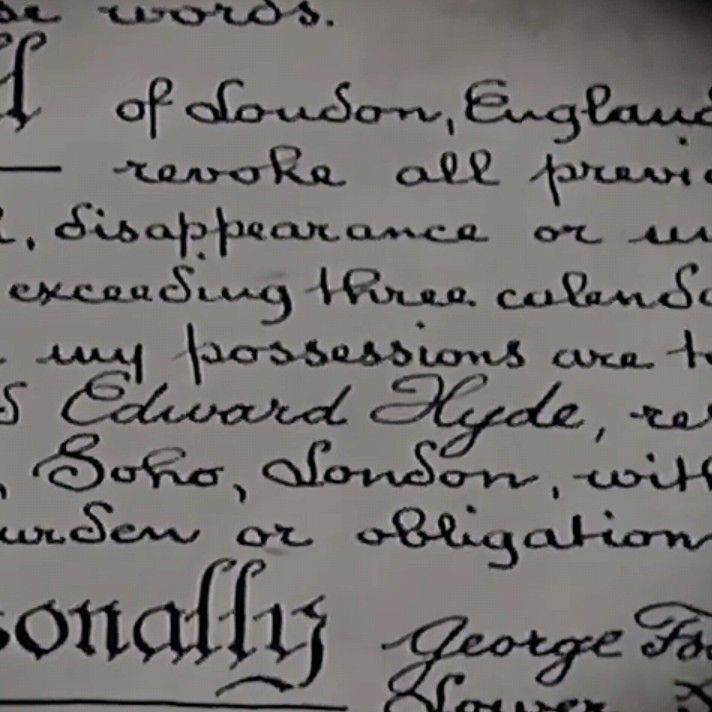 se words.
ll of London, England
revoke all previ
, disappearance or un
exceeding three calenda
my possessions are to
Edward Hyde, re
, Soho, London, with
urden or obligation
sonally George Fo
Lower